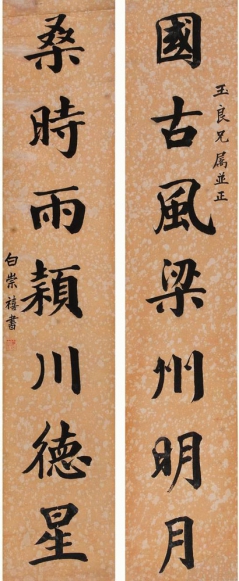 玉良兄属並正
國古風梁州明月
桑時雨穎川德星
白崇禧書